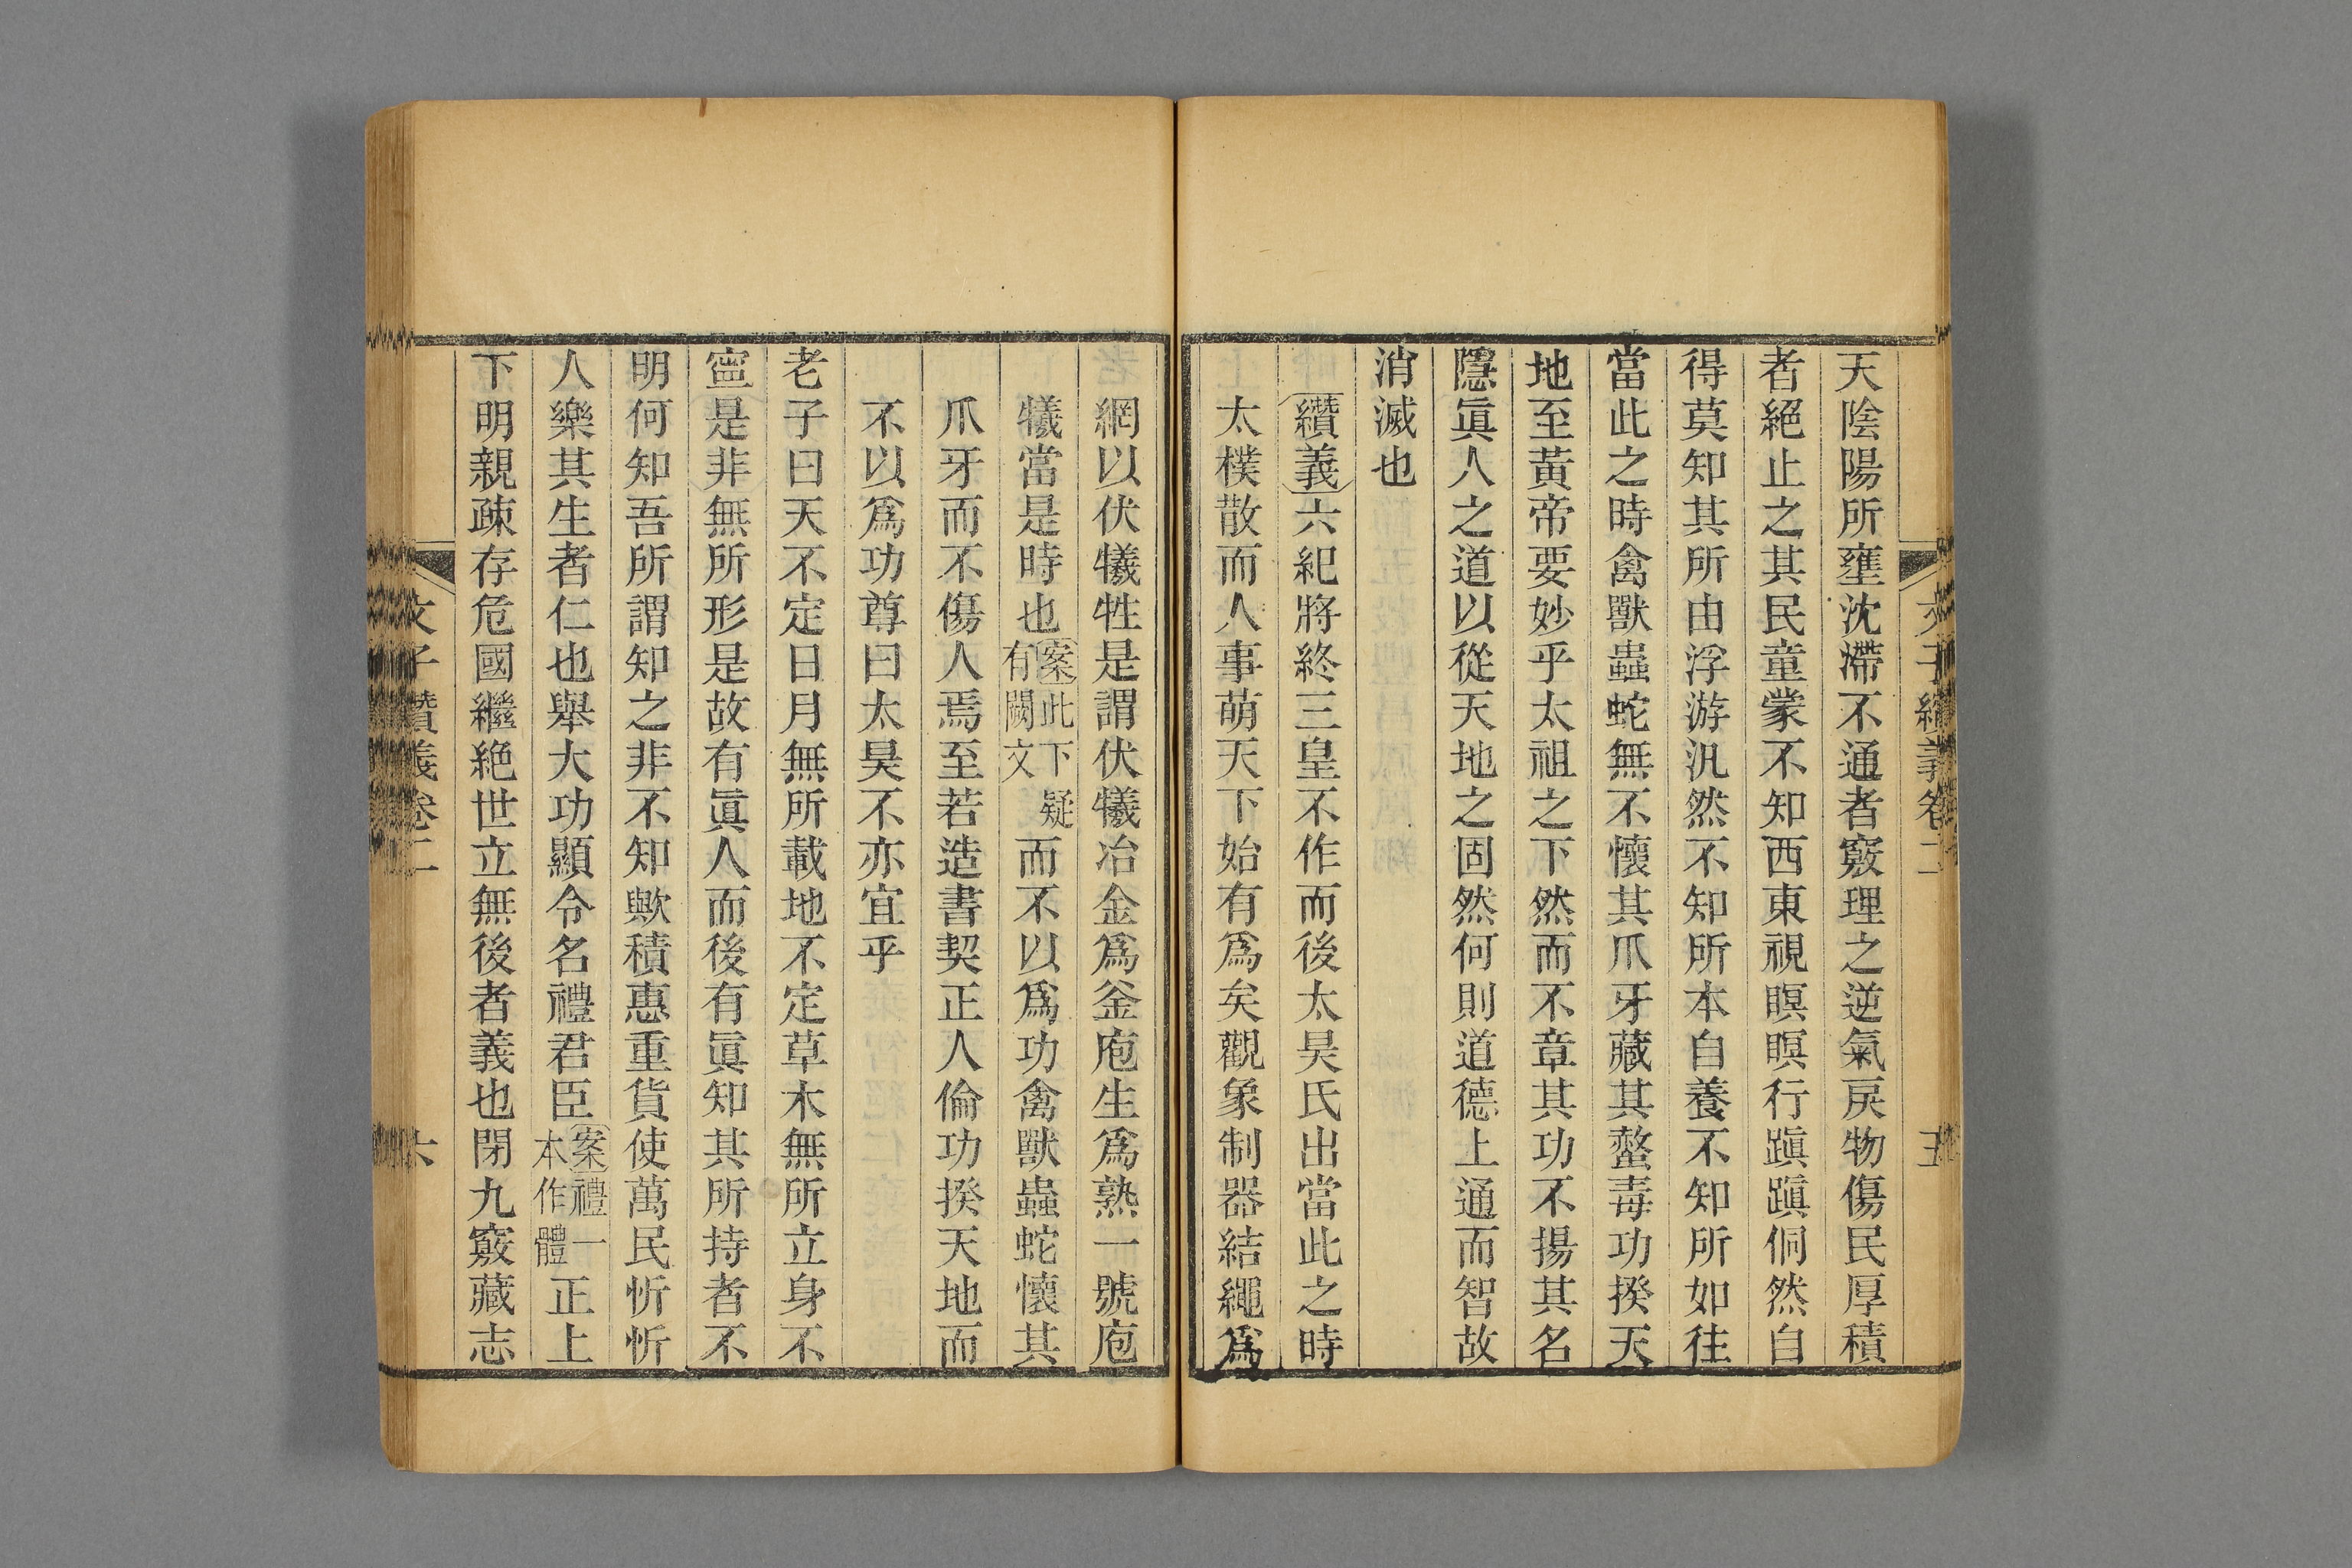 文子纘義卷二 五
天陰陽所壅沈滯不通者竅理之逆氣戾物傷民厚積
者絕止之其民童蒙不知西東視瞑瞑行蹎蹎侗然自
得莫知其所由浮游汎然不知所本自養不知所如往
當此之時禽獸蟲蛇無不懷其爪牙藏其螫毒功揆天
地至黃帝要妙乎太祖之下然而不章其功不揚其名
隱眞人之道以從天地之固然何則道德上通而智故
消滅也
纘義六紀將終三皇不作而後太昊氏出當此之時
太樸散而人事萌天下始有爲矣觀象制器結繩爲
網以伏犧牲是謂伏犧冶金爲釜庖生爲熟一號庖
犧當是時也案此下疑有闕文而不以爲功禽獸蟲蛇懷其
爪牙而不傷人焉至若造書契正人倫功揆天地而
不以爲功尊曰太昊不亦宜乎
老子曰天不定日月無所載地不定草木無所立身不
寍是非無所形是故有眞人而後有眞知其所持者不
明何知吾所謂知之非不知歟積惠重貨使萬民忻忻
人樂其生者仁也舉大功顯令名禮君臣案禮一本作體正上
下明親疎存危國繼絕世立無後者義也閉九竅藏志
文子纘義卷二 六